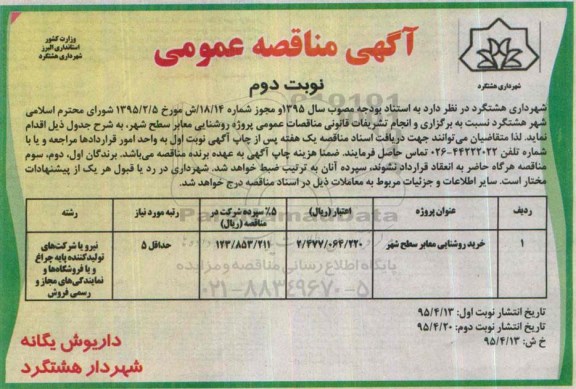 وزارت کشور
استانداری البرز
شهرداری هشتگرد
آگهی مناقصه عمومی
نوبت دوم
شهرداری هشتگرد
شهرداری هشتگرد در نظر دارد به استناد بودجه مصوب سال ۱۳۹۵و مجوز شماره ۱۸/۱۴/ش مورخ ۱۳۹۵/۲/۵ شورای محترم اسلامی
شهر هشتگرد نسبت به برگزاری و انجام تشریفات قانونی مناقصات عمومی پروژه روشنایی معابر سطح شهر، به شرح جدول ذیل اقدام
نماید. لذا متقاضیان می‌توانند جهت دریافت اسناد مناقصه یک هفته پس از چاپ آگهی نوبت اول به واحد امور قراردادها مراجعه و یا با
شماره تلفن ۴۴۲۲۲۰۲۲-۰۲۶ تماس حاصل فرمایند. ضمنا هزینه چاپ آگهی به عهده برنده مناقصه می‌باشد. برندگان اول، دوم، سوم
مناقصه هرگاه حاضر به انعقاد قرارداد نشوند، سپرده آنان به ترتیب ضبط خواهد شد. شهرداری در رد یا قبول هر یک از پیشنهادات
مختار است. سایر اطلاعات و جزئیات مربوط به معاملات ذیل در اسناد مناقصه درج خواهد شد.
ردیف عنوان پروژه اعتبار (ریال) ۵٪ سپرده شرکت در مناقصه (ریال) رتبه مورد نیاز رشته
۱ خرید روشنایی معابر سطح شهر ۲/۴۷۷/۰۶۴/۲۲۰ ۱۲۳/۸۵۳/۲۱۱ حداقل ۵ نیرو یا شرکت‌های
تولیدکننده پایه چراغ
و یا فروشگاه‌ها و
نمایندگی‌های مجاز و
رسمی فروش
پایگاه اطلاع رسانی مناقصه و مزایده
۰۲۱-۸۸۳۴۹۶۷۰-۵
تاریخ انتشار نوبت اول: ۹۵/۴/۱۳
تاریخ انتشار نوبت دوم: ۹۵/۴/۲۰
خ ش: ۹۵/۴/۱۳
داریوش یگانه
شهردار هشتگرد